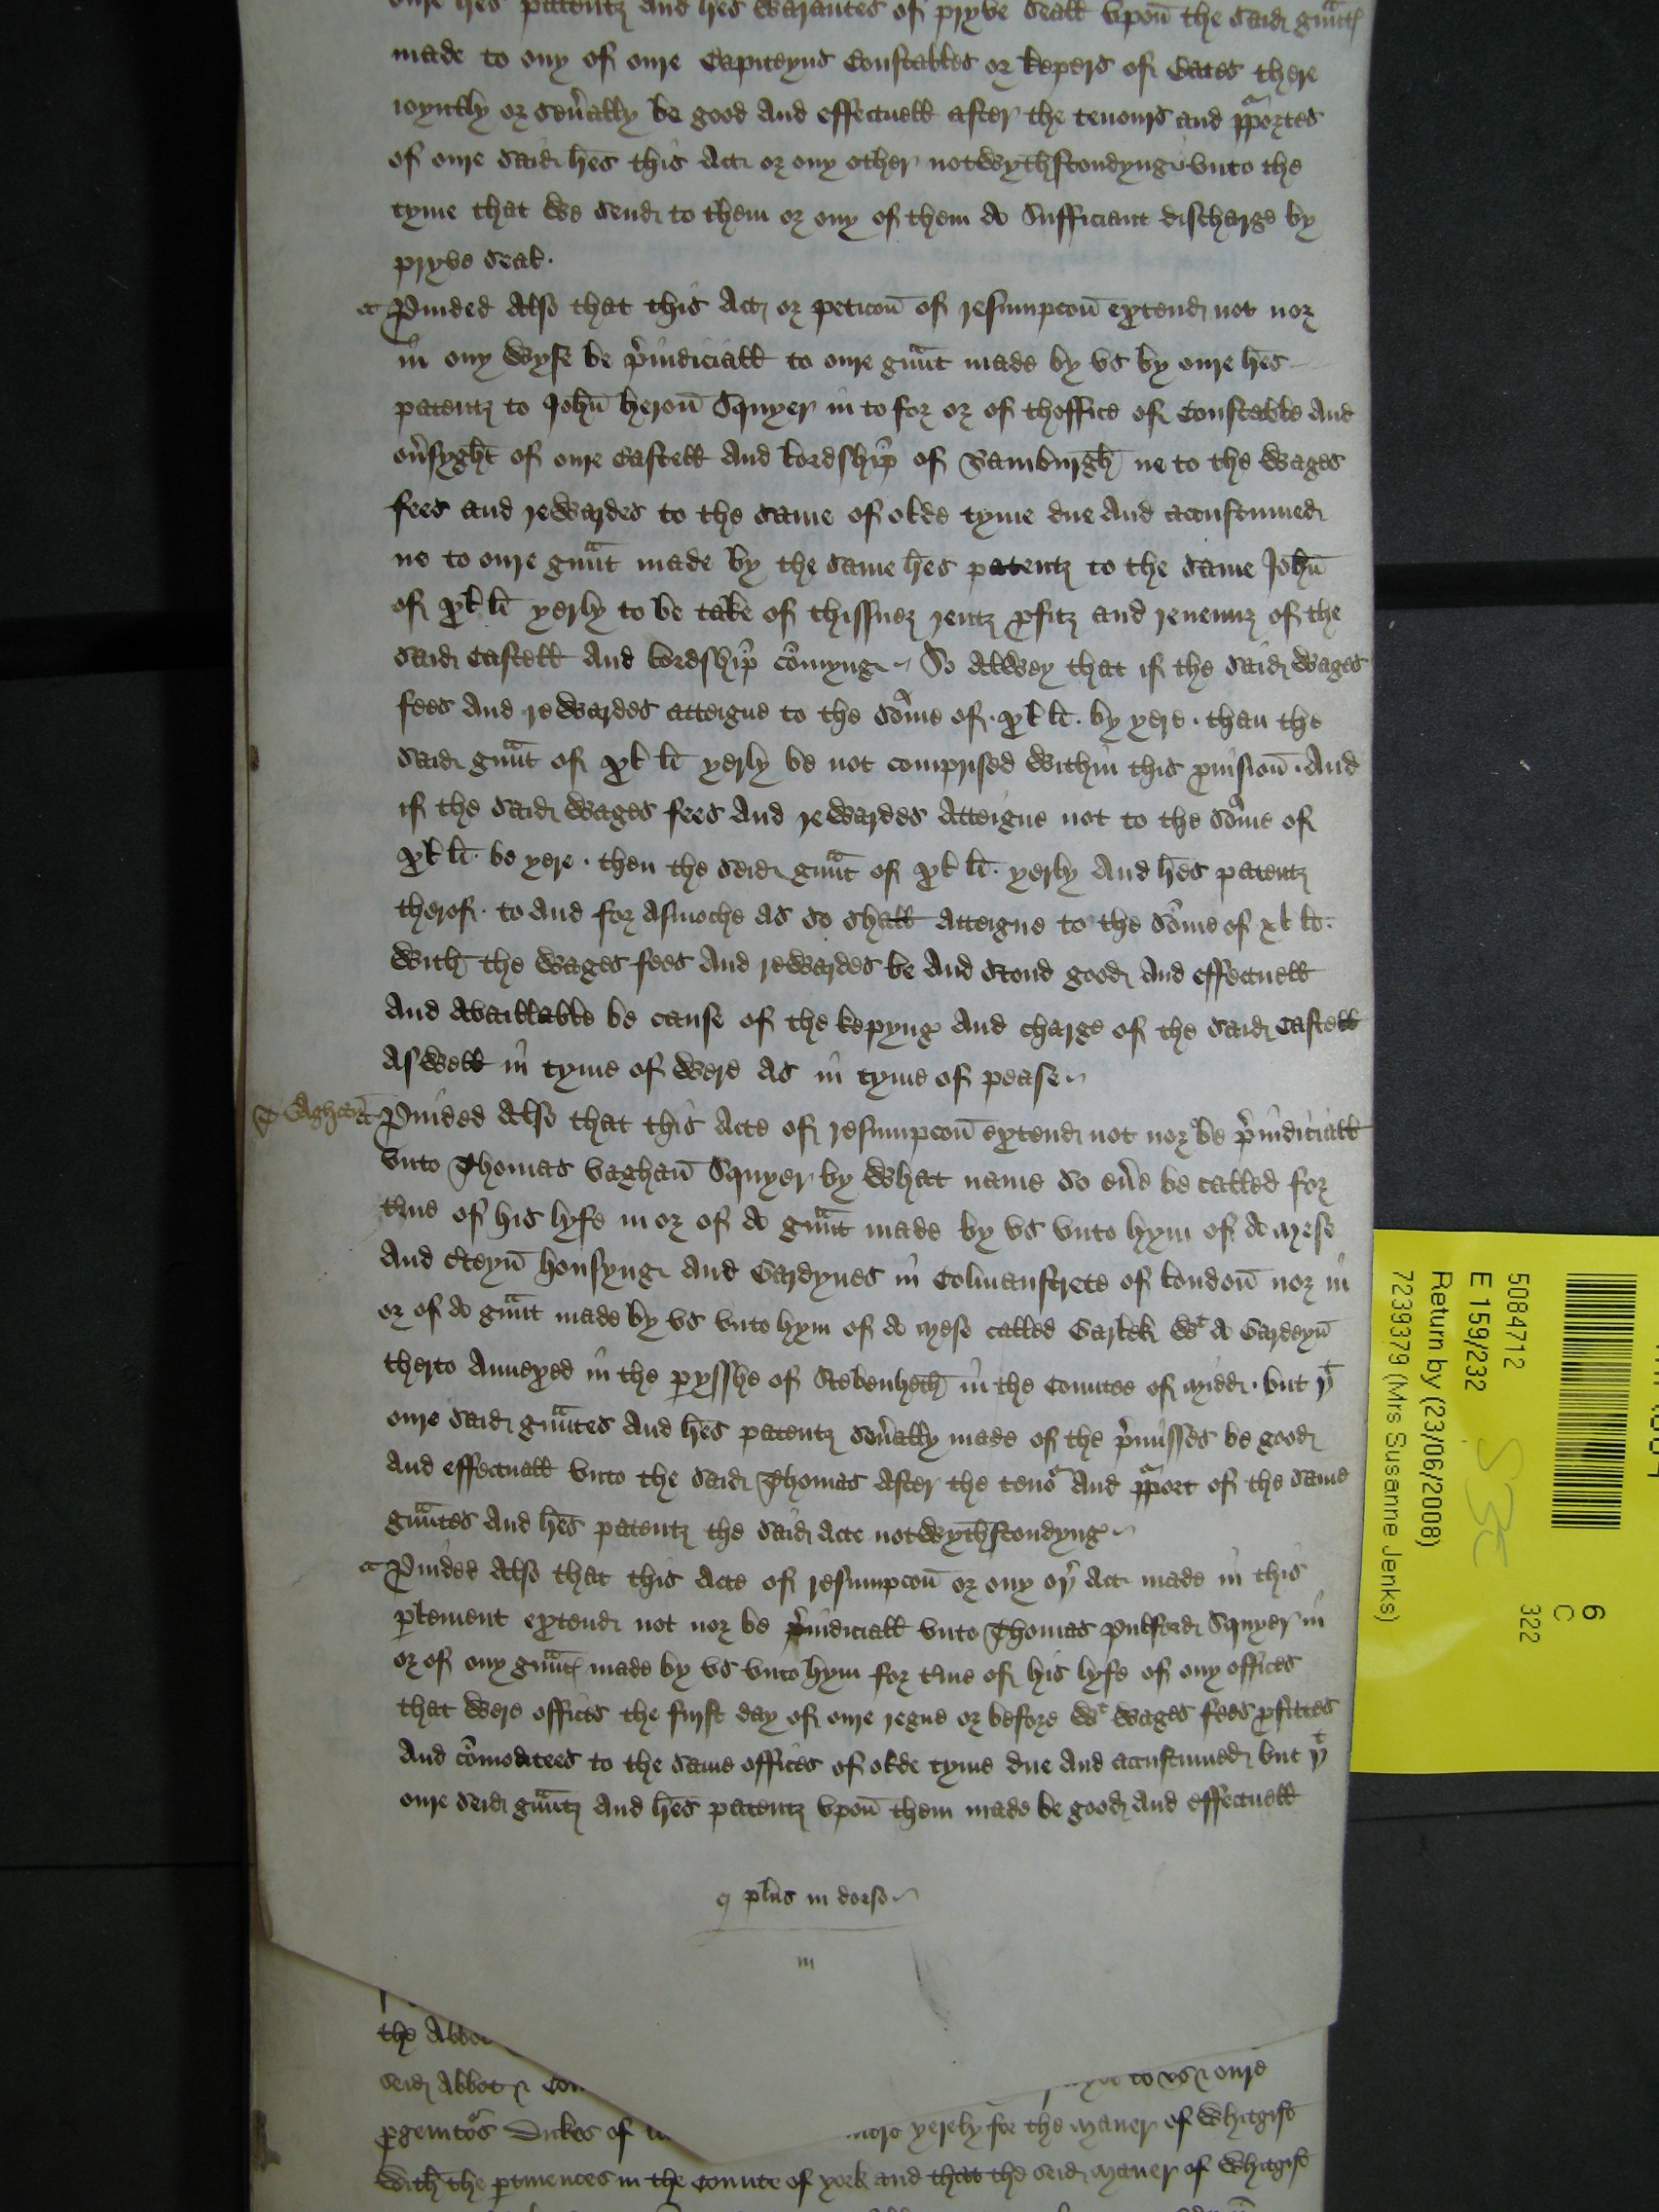 oure lres patentz And lres Warantes of pryve Seall vpon the Said gaunt
made to ony of oure Capiteyns Constables or kepers of Gates there
ioyntly or Seually be good And effectuell after the tenours and pportes
of oure Said lres this Act or ony other notWythstondyng vnto the
tyme that We Send to them or ony of them A Sufficiant discharge by
pryve Seal.
Puided Also that this Act or peticon of resumpcon extend not nor
in ony Wyse be piudiciall to oure gaunt made by vs by oure lres
patentz to John heron Squyer in to for or of thoffice of Constable And
ousyght of oure Castell And Lordship of Bamburgh ne to the Wages
fees and reWardes to the Same of olde tyme due And accustumed
ne to oure gaunt made by the Same lres patentz to the Same John
of xl li yerly to be take of thissuez rentz pfitz and revenuz of the
Said Castell And Lordship comyng So AlWey that if the Said Wages
fees And reWardes atteigne to the Some of . xl li . by yere . than the
Said gaunt of xl li yerly be not comprised Within this puision . And
if the Said Wages fees And reWardes Atteigne not to the Some of
xl li . be yere . then the Seid gaunt of xl li . yerly And lres patentz
therof . to And for Asmoche As So Shall Atteigne to the Some of xl li .
With the Wages fees And reWardes be And Stond good And effectuell
And Availlable be cause of the kepyng And charge of the Said Castell
AsWell in tyme of Were As in tyme of pease
Vaghan Puided Also that this Acte of resumpcon extend not nor be piudiciall
vnto Thomas Vaghan Squyer by What name So eue be called for
tme of his lyfe in or of A gaunt made by vs vnto hym of A Mese
And cteyn housyng And Gardynes in Colmanstrete of London nor in
or of A gaunt made by vs vnto hym of A Mese called Garlek Wt A Gardeyn
therto Annexed in the pysshe of Stebenheth in the Countee of Midd . but yt
oure Said gauntes And lres patentz Seually made of the pmisses be good
And effectuall vnto the Said Thomas After the teno And pport of the Same
gauntes And lres patentz the Said Acte notWythstondyng
Puided Also that this Acte of resumpcon or ony oy Act made in this
plement extend not nor be piudiciall vnto Thomas Pulford Squyer in
or of ony gaunt made by vs vnto hym for tme of his lyfe of ony offices
that Were offices the furst day of oure regne or before Wt Wages fees pfittes
And comoditees to the Same offices of olde tyme due And accustumed but yt
oure Seid gauntz And lres patentz vpon them made be good And effectuell
plus in dorso
the Abbot
Seid Abbot
to vs oure
pgenitos Dukes of
yerely for the Maner of Whitgift
With the ptinences in the Counte of york and that the Seid Maner of Whitgift
5084712
E 159/232
Return by (23/06/2008)
7239379 (Mrs Susanne Jenks)
6
C
322